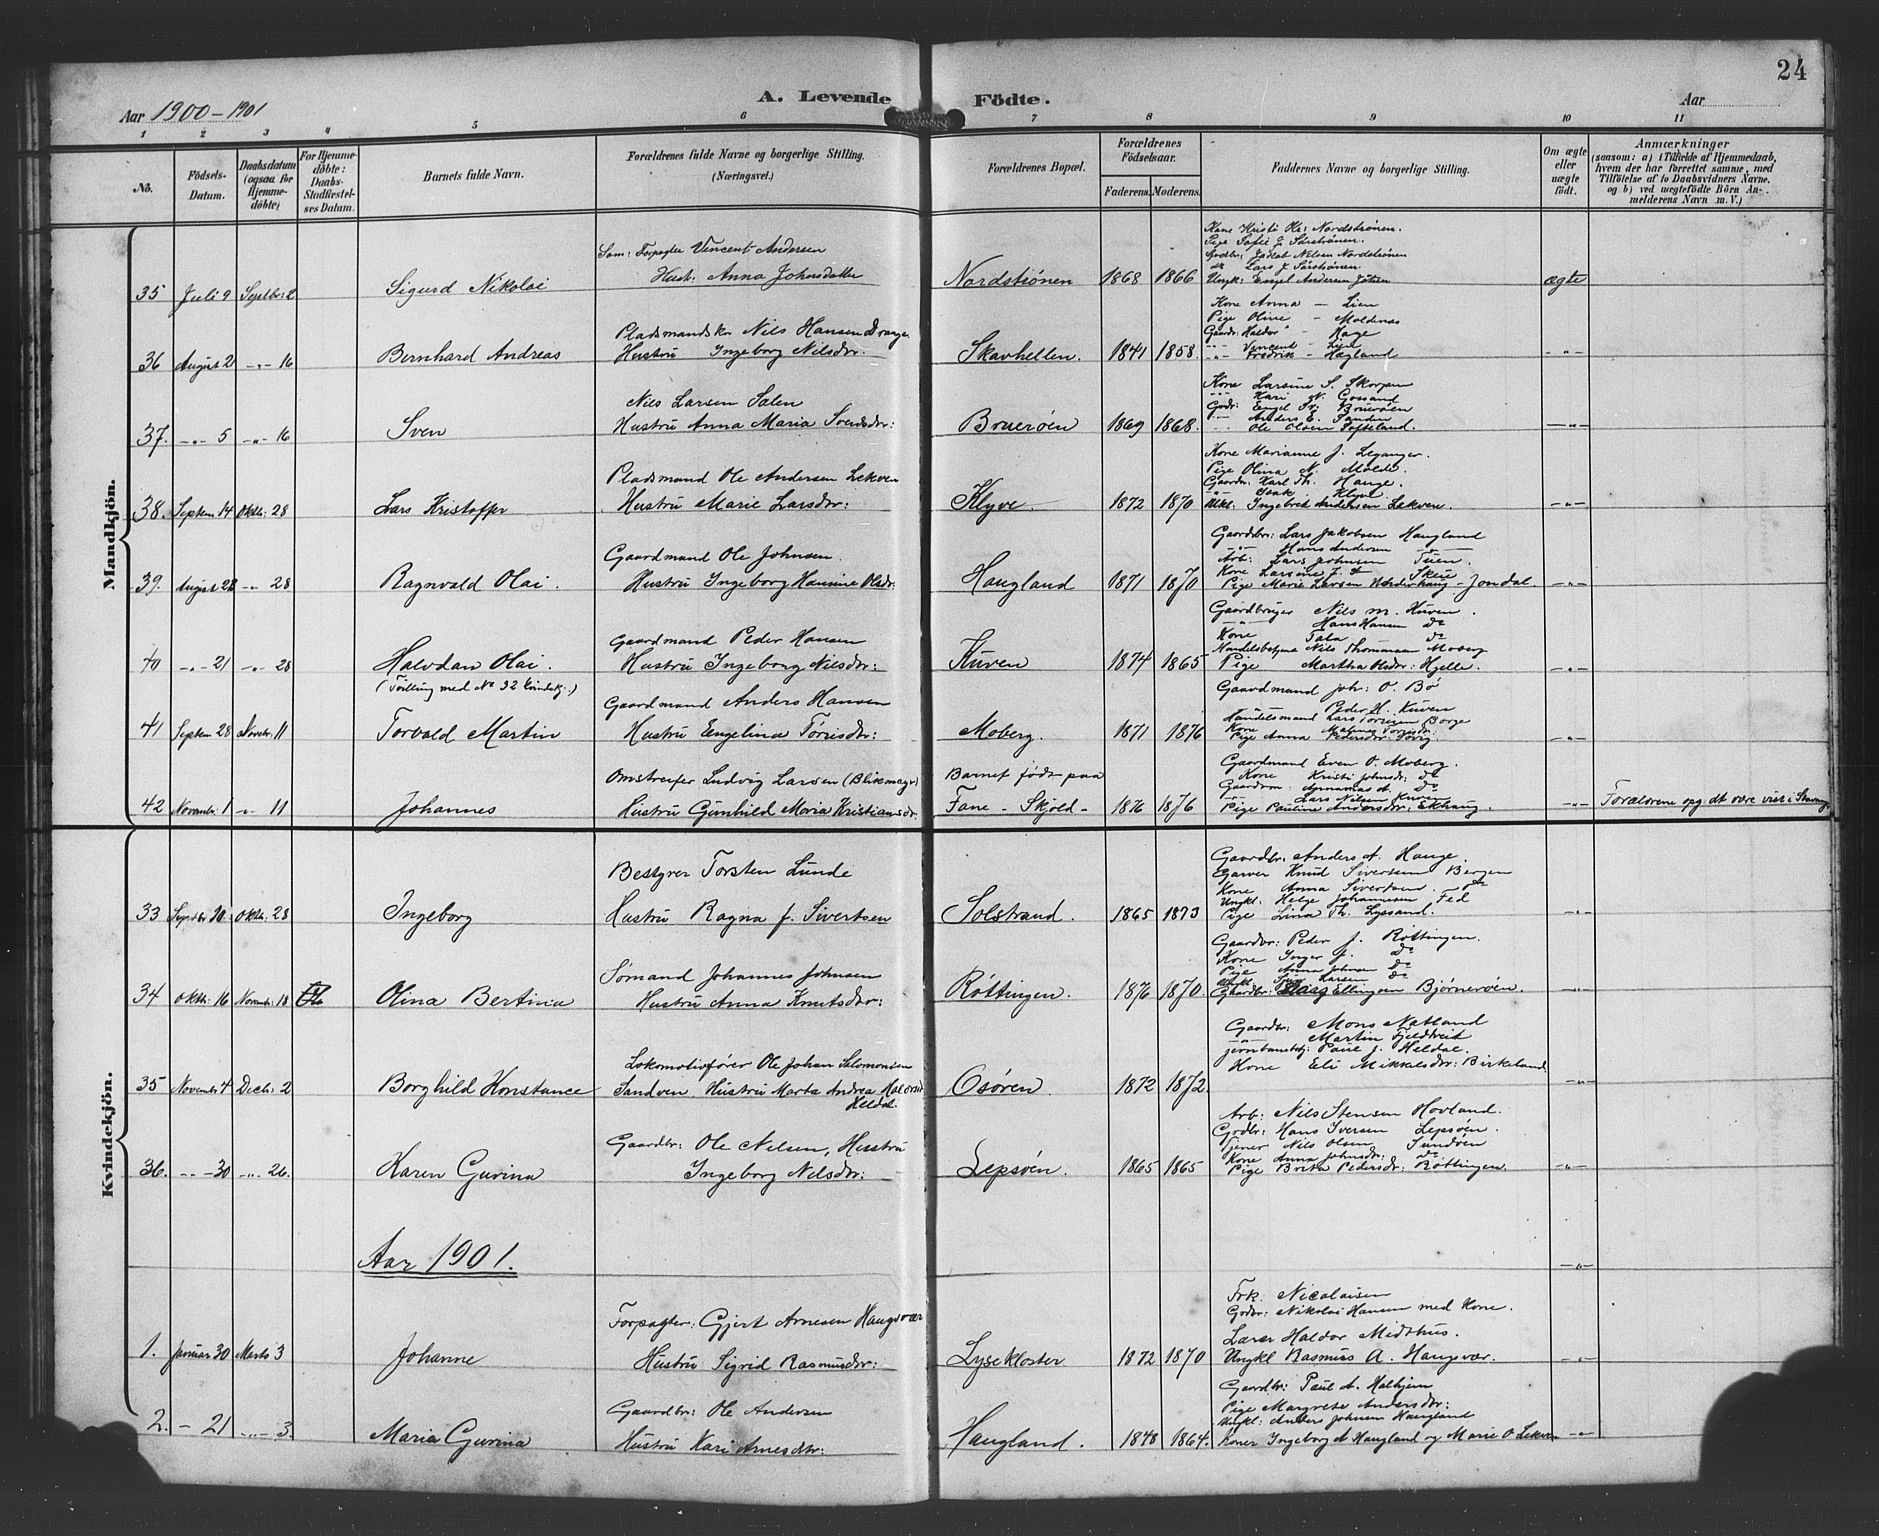 24
Aar 1900-1901
A. Levende Födte.
Aar
1 2 3 4 5 6 7 8 9 10 11
No.
Födsels-Datum.
Daabsdatum (ogsaa for Hjemme-döbte)
For Hjemme-döbte: Daabs-Stadfæstel-ses Datum.
Barnets fulde Navn.
Forældrenes fulde Navne og borgerlige Stilling. (Næringsvei.)
Forældrenes Bopæl.
Forældrenes Födselsaar.
Faderens. Moderens.
Faddernes Navne og borgerlige Stilling.
Om ægte eller uægte födt.
Anmærkninger
(saasom: a) i Tilfælde af Hjemmedaab, hvem der har forrettet samme, med Tilföielse af to Daabsvidners Navne, og b) ved uægtefödte Börn An-melderens Navn m. V.)
Mandkjön.
35 Juli 9 Septbr: 2 Sigurd Nikolai
Som: Forpagter Vincent Andersen
Hustr: Anna Johnsdatter
Nordstrønen 1868 1866
Kone Kristi Ols: Nordstrønen.
Pige Sofie J. Sørstrønen.
Jakob Nilsen Nordstrønen
do Lars J. Sørstrønen.
Ungk: Engel Andersen
ægte
36 August 2 -"- 16 Bernhard Andreas
Pladsmand Nils Hansen Drange
Hustru Ingeborg Nilsdr.
Skavhellen. 1841 1858.
Kone Anna - Lien
Pige Oline - Moldenæs
Gaardr: Haldor - Hage
-"- Vincent - Lien
-"- Fredrik - Hægland
-"-
37. -"- 5 -"- 16 Sven
Nils Larsen Salen
Hustru Anna Maria Svendsdr:
Bruerøen 1869 1868.
Kone Larsine S. Skorpen
-"- Kari N.
Grdr: Engel Sv. Bruerøen
-"- Anders E. Sanden
-"- Ole Olsen Søfteland.
-"-
38. Septem 14 Oktbr: 28 Lars Kristoffer
Pladsmand Ole Andersen Lekven
Hustru Marie Larsdr:
Klyve. 1872 1870
Kone Marianne J. Leganger.
Pige Olina N. Molde.
Gaardr: Karl Th. Hauge.
-"- Isak Klyve
Ukl: Ingebret Andersen Lekven.
-"-
39. August 28 -"- 28 Ragnvald Olai.
Gaardmand Ole Johnsen.
Hustru Ingeborg Hansine Olsdr:
Haugland 1871 1870
Gaardbr: Lars Jakobsen Haugland
-"- Hans Andersen -"-
Arb: Lars Johnsen Tuen.
Kone Larsine J. Skeie
Pige Marie Larsen - Jondal
-"-
40 -"- 21 -"- 28 Halvdan Olai.
(Tvilling med No 32 Kvindekj.)
Gaardmand Peder Hansen
Hustru Ingeborg Nilsdr:
Kuven 1874 1865
Gaardbruger Nils M. Kuven.
-"- Hans Hansen do
Kone Tala do
Handelsbetjent Nils Thomassen Moberg
Pige Martha Olsdr: Hjelle.
-"-
41 Septem 28 Novbr: 11 Torvald Martin
Gaardmand Anders Hansen
Hustru Engelina Tørrisdr:
Moberg. 1871 1876
Gaardmand Joh: O. Bø
Peder H. Kuven
Handelsmand Lars Tørrisen Borge
Kone Malene Torrisdr:
Pige Anna Pedersdr:
-"-
42 Novembr: 1 -"- 11 Johannes
Omstreifer Ludvig Larsen (Blikmager)
Hustru Gunhild Maria Kristiansdr.
Barnet født paa
Fane - Skjold - 1876 1876
Gaardmand Even O. Moberg.
Kone Kristi Johnsdr: do
Gaardm: do
-"- Lars Nilsen Kuven
Pige Pauline Andersdr: Ekhaug.
-"-
Forældrene opg: dt være viet i Stavanger
Kvindekjön.
33 Septbr 10: Oktbr: 28 Ingeborg
Bestyrer Torsten Lunde
Hustru Ragna f. Sivertsen
Solstrand. 1865 1873
Gaardbr: Anders A. Hauge.
Garver Knud Sivertsen Bergen
Kone Anna Sivertsen. do
Ungkl: Helge Johannesen Fed
Pige Lina Th. Lyssand.
-"-
34 Oktbr: 16 Novembr: 18 Olina Bertina
Sømand Johannes Johnsen
Hustru Anna Knutsdr:
Røttingen. 1876 1870
Gaardbr: Peder J. Røttingen.
Kone Inger J. do
Pige Anna Johnsen do
Larsen do
Gaardbr: Lars Ellingsen Bjørnerøen.
-"-
35 Novembr: 4 Decbr: 2 Borghild Konstance
Lokomotivfører Ole Johan Salomonsen
Sandven, Hustru Marta Andrea
Heldal.
Osøren. 1872 1872.
Gaardbr: Mons Natland
-"- Martin Fjeldtveit
Jernbanebetj: Paul J. Heldal.
Kone Eli Mikkelsdr: Birkeland
-"-
36. -"- 30 -"- 26. Karen Gurina
Gaardbr: Ole Nilsen, Hustru
Ingeborg Nilsdr:
Lepsøen. 1865 1865
Arb: Nils Stensen Hovland.
Grdbr: Hans Iversen Lepsøen.
Tjener Nils Olsen Sundøen
Kone Anna Johnsdr: do
Pige Brita Pedersdr: Røttingen.
-"-
Aar 1901.
-"-
1. Januar 30 Marts 3 Johanne
Forpagter: Gjert Arnesen Haugsvær
Hustru Sigrid Rasmusdr:
Lysekloster 1872 1870
Frk: Nicolaisen
Grdbr: Nikolai Hansen med Kone.
Lærer Haldor Midthus.
Ungkl Rasmus A. Haugsvær.
-"-
2. - 21 -"- 3. Maria Gurina
Gaardbr: Ole Andersen
Hustru Kari Arnesdtr:
Haugland. 1848 1864.
Gaardbr: Paul A. Halhjem
Pige Margrete Andersdr:
Ungkl: Anders Johnsen Haugland
Koner Ingeborg A Haugland og Marie O Lekven
-"-